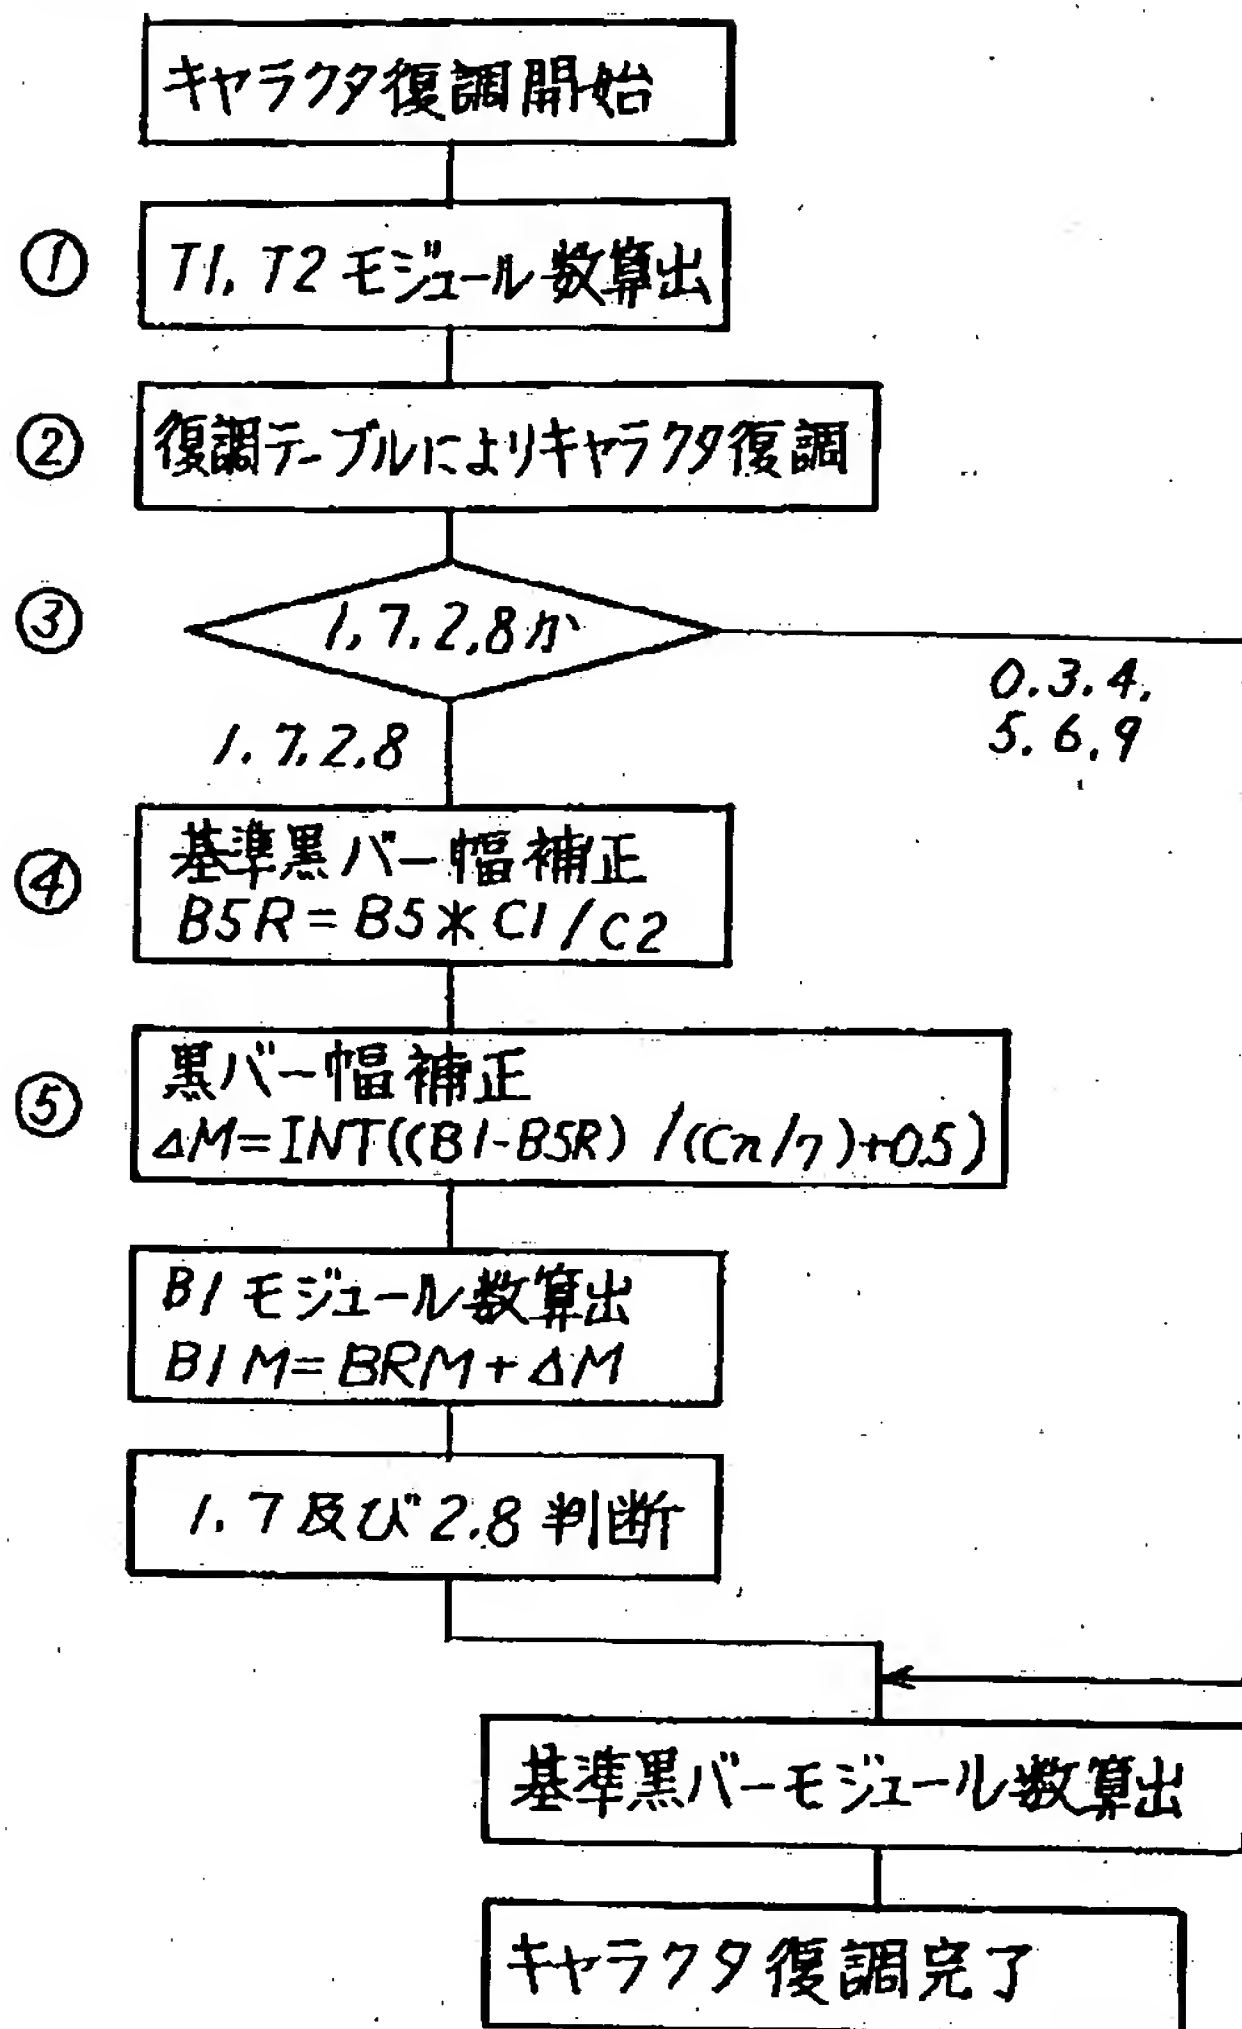 キャラクタ復調開始
① T1, T2 モジュール数算出
② 復調テーブルによりキャラクタ復調
③ 1, 7. 2, 8か
0. 3. 4.
5. 6. 9
1. 7. 2. 8
④ 基準黒バー幅補正
B5R = B5 * C1 / C2
⑤ 黒バー幅補正
ΔM=INT((B1-B5R) /(Cn/7)+0.5)
B1 モジュール数算出
B1M= BRM + ΔM
1. 7 及び 2. 8 判断
基準黒バーモジュール数算出
キャラクタ復調完了